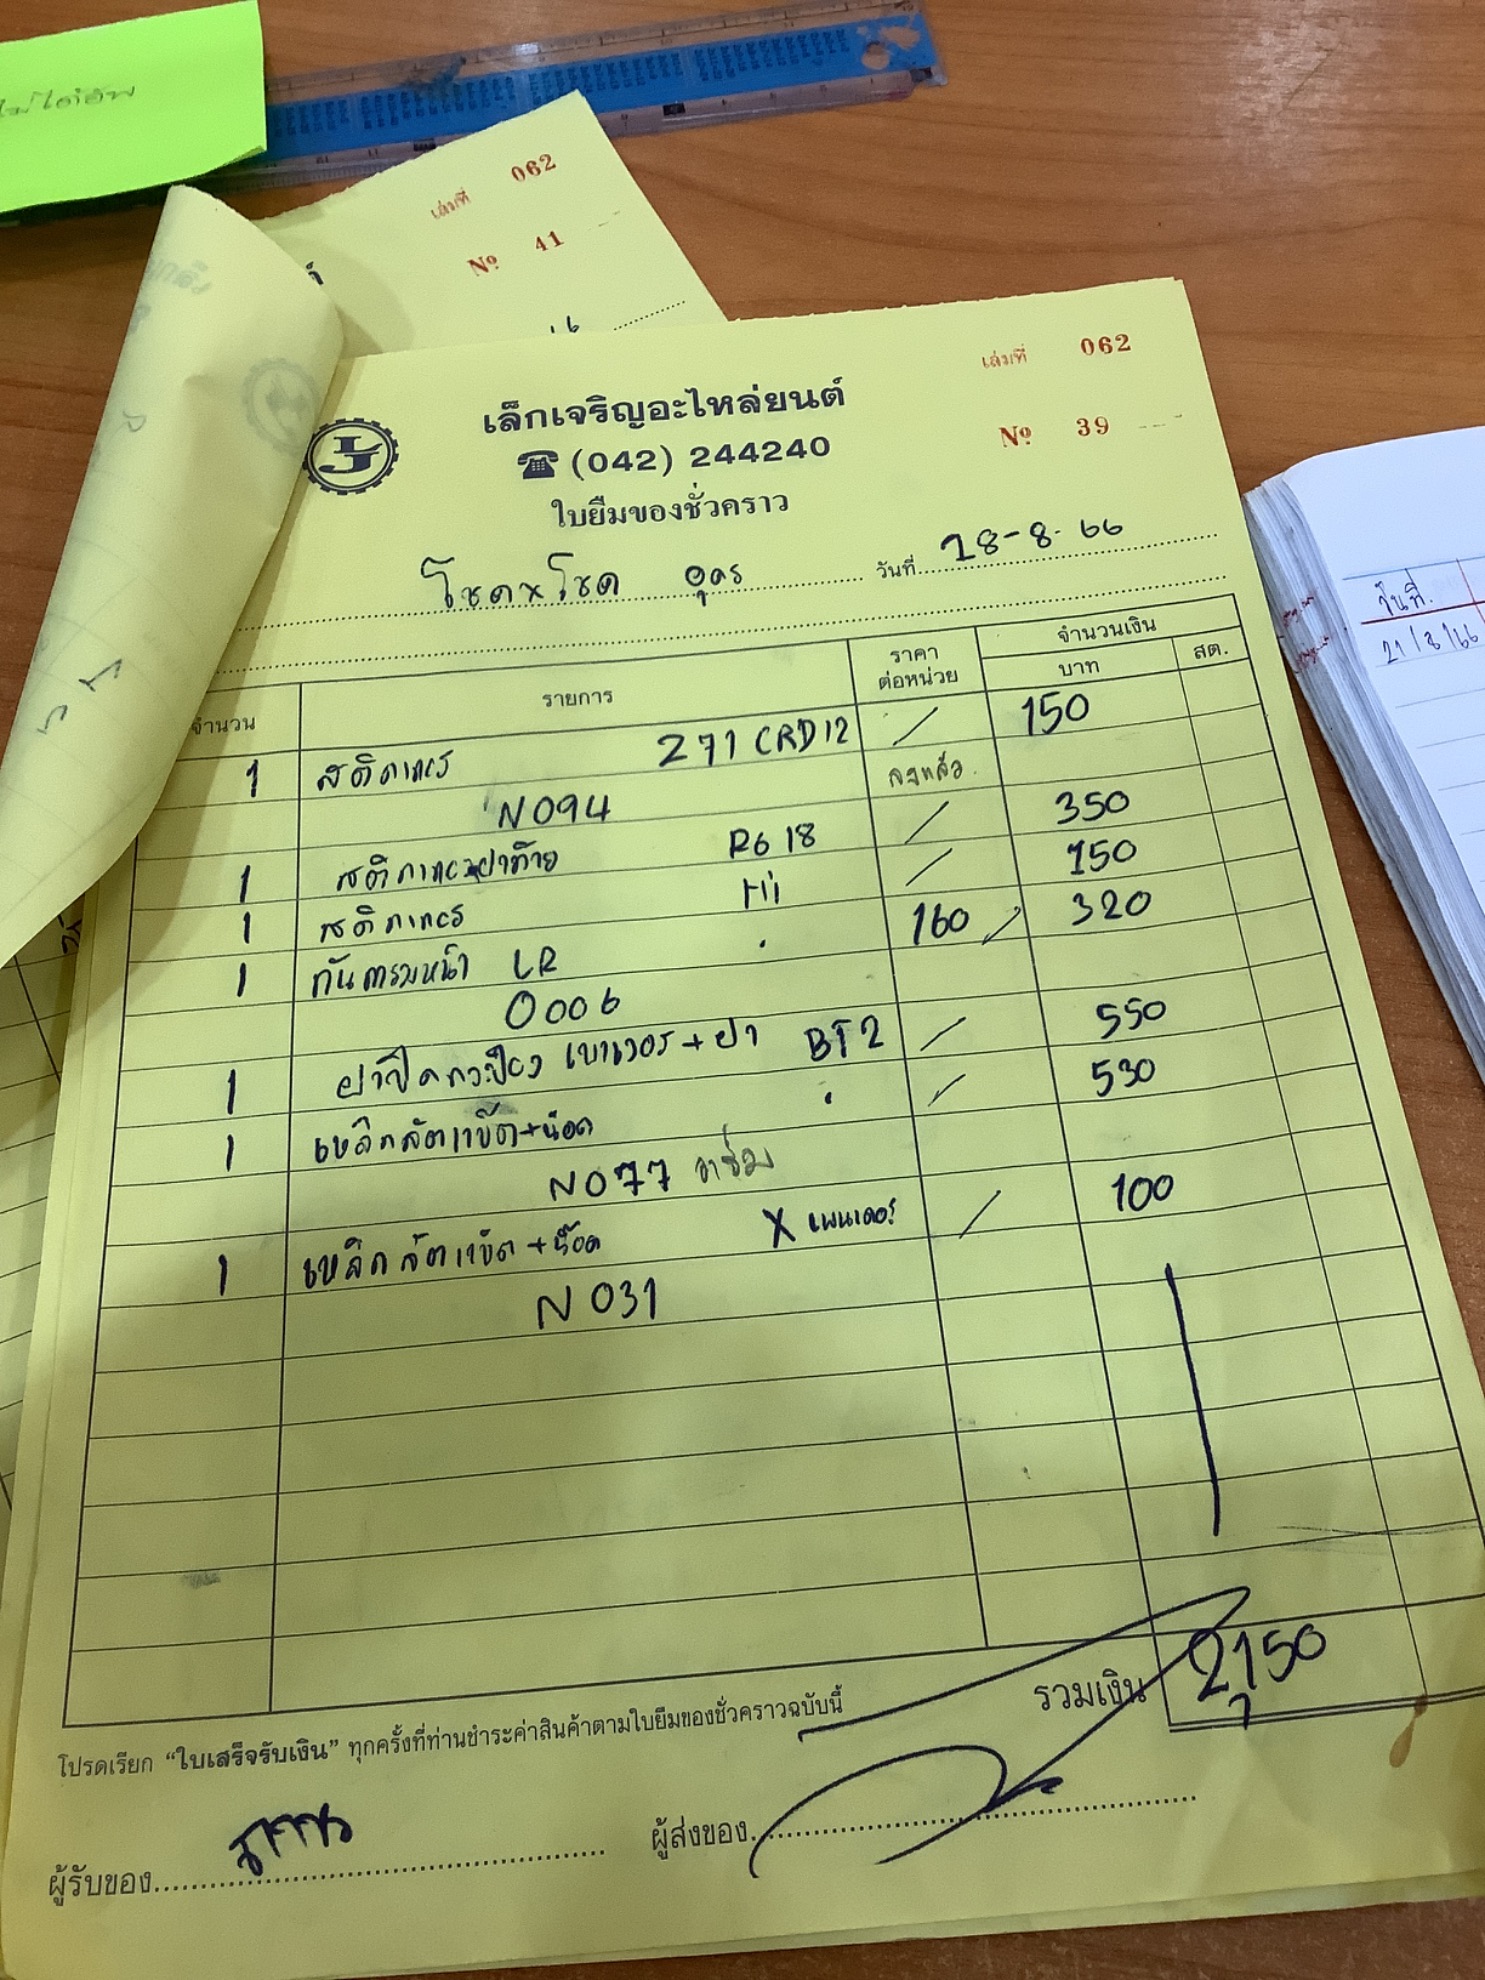 ไม่ได้อัพ
เล่มที่ 062
Nº 41
เล่มที่ 062
เล็กเจริญอะไหล่ยนต์
(042) 244240
Nº 39
ใบยืมของชั่วคราว
โชค x โชค อุดร วันที่ 28-8-66
จำนวน รายการ ราคาต่อหน่วย จำนวนเงิน
บาท สต.
1 271 CRD12 / 150
N094 ลงแล้ว
1 R618 / 350
1 Hi / 150
1 กันครมหน้า LR 160 / 320
0006
1 + ฝา BT2 / 550
1 เหล็กรัดแข้ต+น๊อต / 530
N077 อาซ่อม
1 เหล็กรัดแข้ต+น๊อต X เพนเดอร์ / 100
N031
รวมเงิน 2,150
โปรดเรียก “ใบเสร็จรับเงิน” ทุกครั้งที่ท่านชำระค่าสินค้าตามใบยืมของชั่วคราวฉบับนี้
ผู้รับของ ผู้ส่งของ
วันที่.
21/8/66